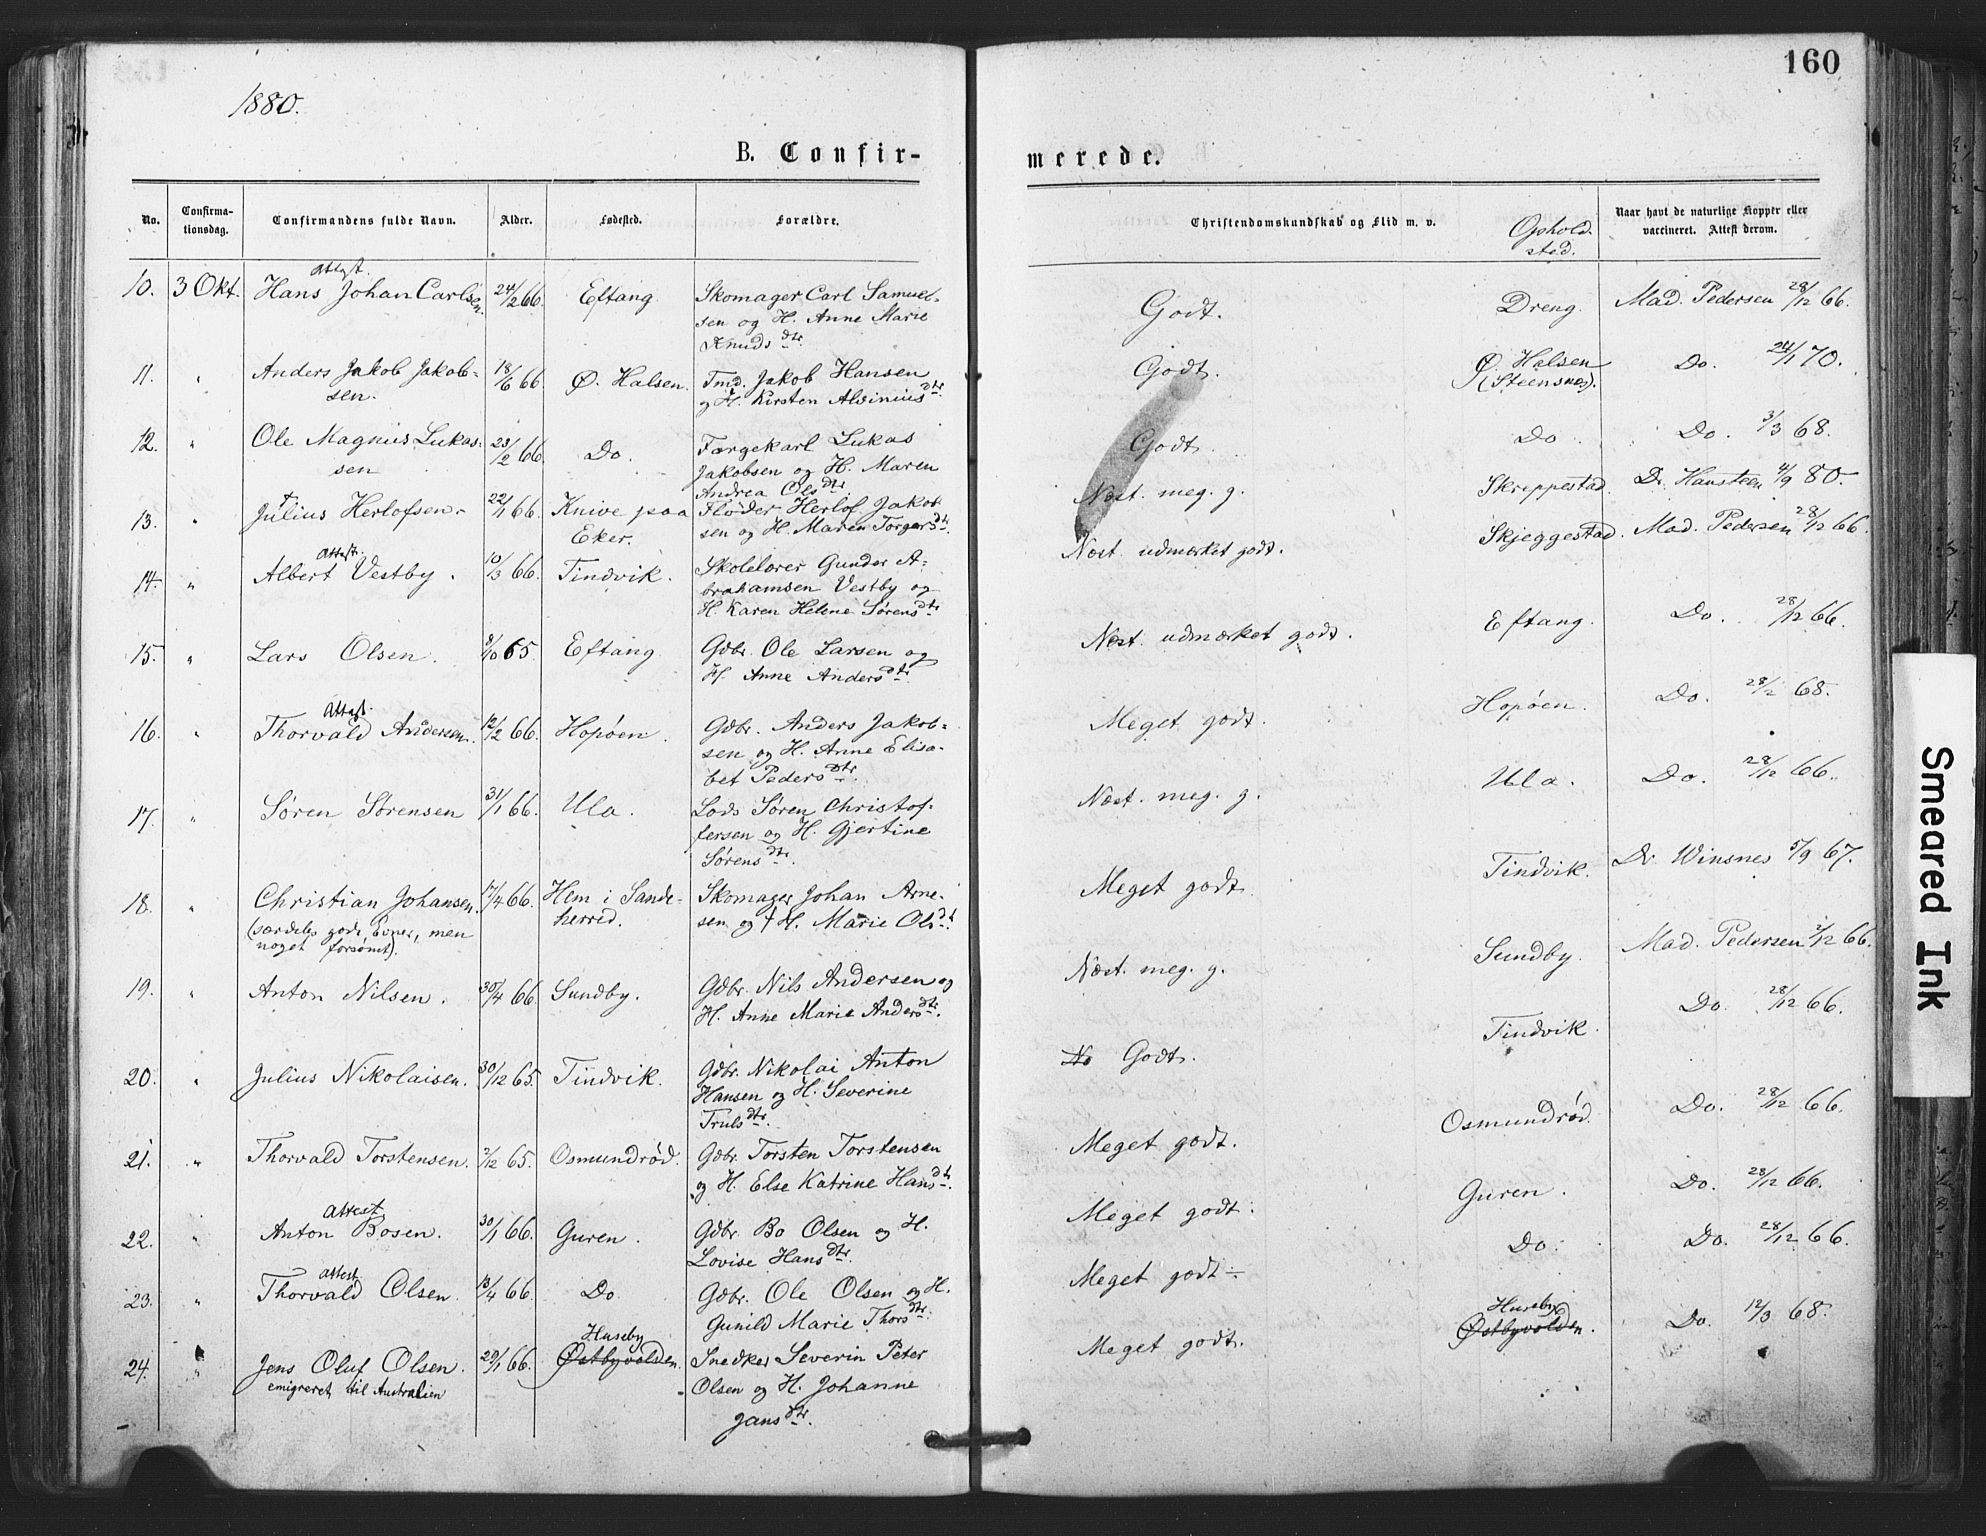 160
1880.
B. Confir-
merede.
No.
Confirma-
tionsdag.
Confirmandens fulde Navn.
Alder.
Fødested.
Forældre.
Christendomskundskab og Flid m. v.
Ophold.
sted.
Naar havt de naturlige Kopper eller
vaccineret. Attest derom.
Attest.
10. 3 Okt. Hans Johan Carlsen. 24/2 66. Eftang. Skomager Carl Samuel-
sen og H. Anne Marie
Knudsdtr.
Godt. Dreng. Mad. Pedersen 28/12 66.
11. " Anders Jakob Jakob- 18/6 66. Ø. Halsen. Tmd. Jakob Hansen
sen. og H. Kirsten Alviniusdtr.
Godt. Ø. Halsen Do. 24/1 70.
(Steensnæs).
12. " Ole Magnus Lukas- 23/2 66. Do. Færgekarl Lukas
sen Jakobsen og H. Maren
Andrea Olsdtr
Godt. Do. Do. 3/3 68.
13. " Julius Herlofsen. 22/1 66. Knive paa Fløder Herlof Jakob-
Eker. sen og H. Maren Torgersdtr.
Næst. meg. g. Skreppestad. Dr. Hansteen 4/9 80.
Attest.
14. " Albert Vestby. 10/3 66. Tindvik. Skolelærer Gunder A-
brahamsen Vestby og
H. Karen Helene Sørensdtr
Næst. udmærket godt. Skjeggestad. Mad. Pedersen 28/12 66.
15. " Lars Olsen. 8/10 65. Eftang. Gdbr. Ole Larsen og
H. Anne Andersdtr.
Næst. udmærket godt. Eftang. Do. 28/12 66.
Attest.
16. " Thorvald Andersen. 12/2 66. Hopøen. Gdbr. Anders Jakob-
sen og H. Anne Elisa-
bet Pedersdtr.
Meget godt. Hopøen. Do. 28/2 68.
17. " Søren Sørensen 31/1 66. Ula. Lods Søren Christof-
fersen og H. Gjertine
Sørensdtr.
Næst. meg. g. Ula. Do. 28/12 66.
18. " Christian Johansen. 17/4 66. Hem i Sande- Skomager Johan Arne-
(særdeles gode Evner, men herred. sen og † H. Marie Olsdtr.
noget forsømt).
Meget godt. Tindvik. Dr. Winsnes 5/9 67.
19. " Anton Nilsen. 30/4 66. Sundby. Gdbr. Nils Andersen og
H. Anne Marie Andersdtr.
Næst. meg. g. Sundby. Mad. Pedersen 2/12 66.
20. " Julius Nikolaisen. 30/12 65. Tindvik. Gdbr. Nikolai Anton
Hansen og H. Severine
Trulsdtr.
No Godt. Tindvik. Do. 28/12 66.
21. " Thorvald Torstensen. 2/12 65. Osmundrød. Gdbr. Torsten Torstensen
og H. Else Katrine Hansdtr.
Meget godt. Osmundrød. Do. 28/12 66.
Attest
22. " Anton Bosen. 30/1 66. Guren. Gdbr. Bo Olsen og H.
Lovise Hansdtr.
Meget godt. Guren. Do. 28/12 66.
Attest.
23. " Thorvald Olsen. 13/4 66. Do. Gdbr. Ole Olsen og H.
Gunild Marie Thorsdtr.
Meget godt. Do. Do. 28/12 66.
Huseby
24. " Jens Oluf Olsen. 29/1 66. Østbyvolden. Snedker Severin Peter
emigreret til Australien Olsen og H. Johanne
Jansdtr.
Huseby
Meget godt. Østbyvolden. Do. 12/3 68.
Smeared Ink